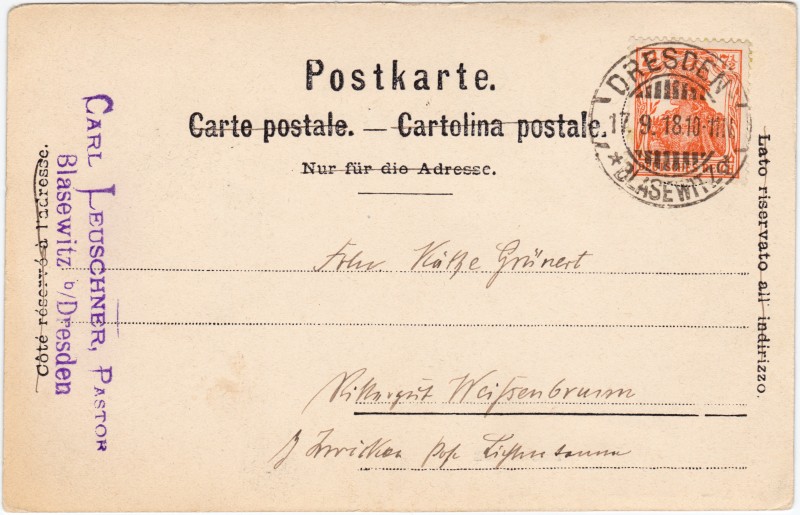 Postkarte.
Carte postale. — Cartolina postale.
Nur für die Adresse.
DRESDEN
17.9.18.10-11V.
* BLASEWITZ
7½
Côté réservé à l'adresse.
CARL LEUSCHNER, PASTOR
Blasewitz b/Dresden
Lato riservato all' indirizzo.
Frln Käthe Grünert
Rittergut Weißenbrunn
b/ Zwickau Post Lichtentanne